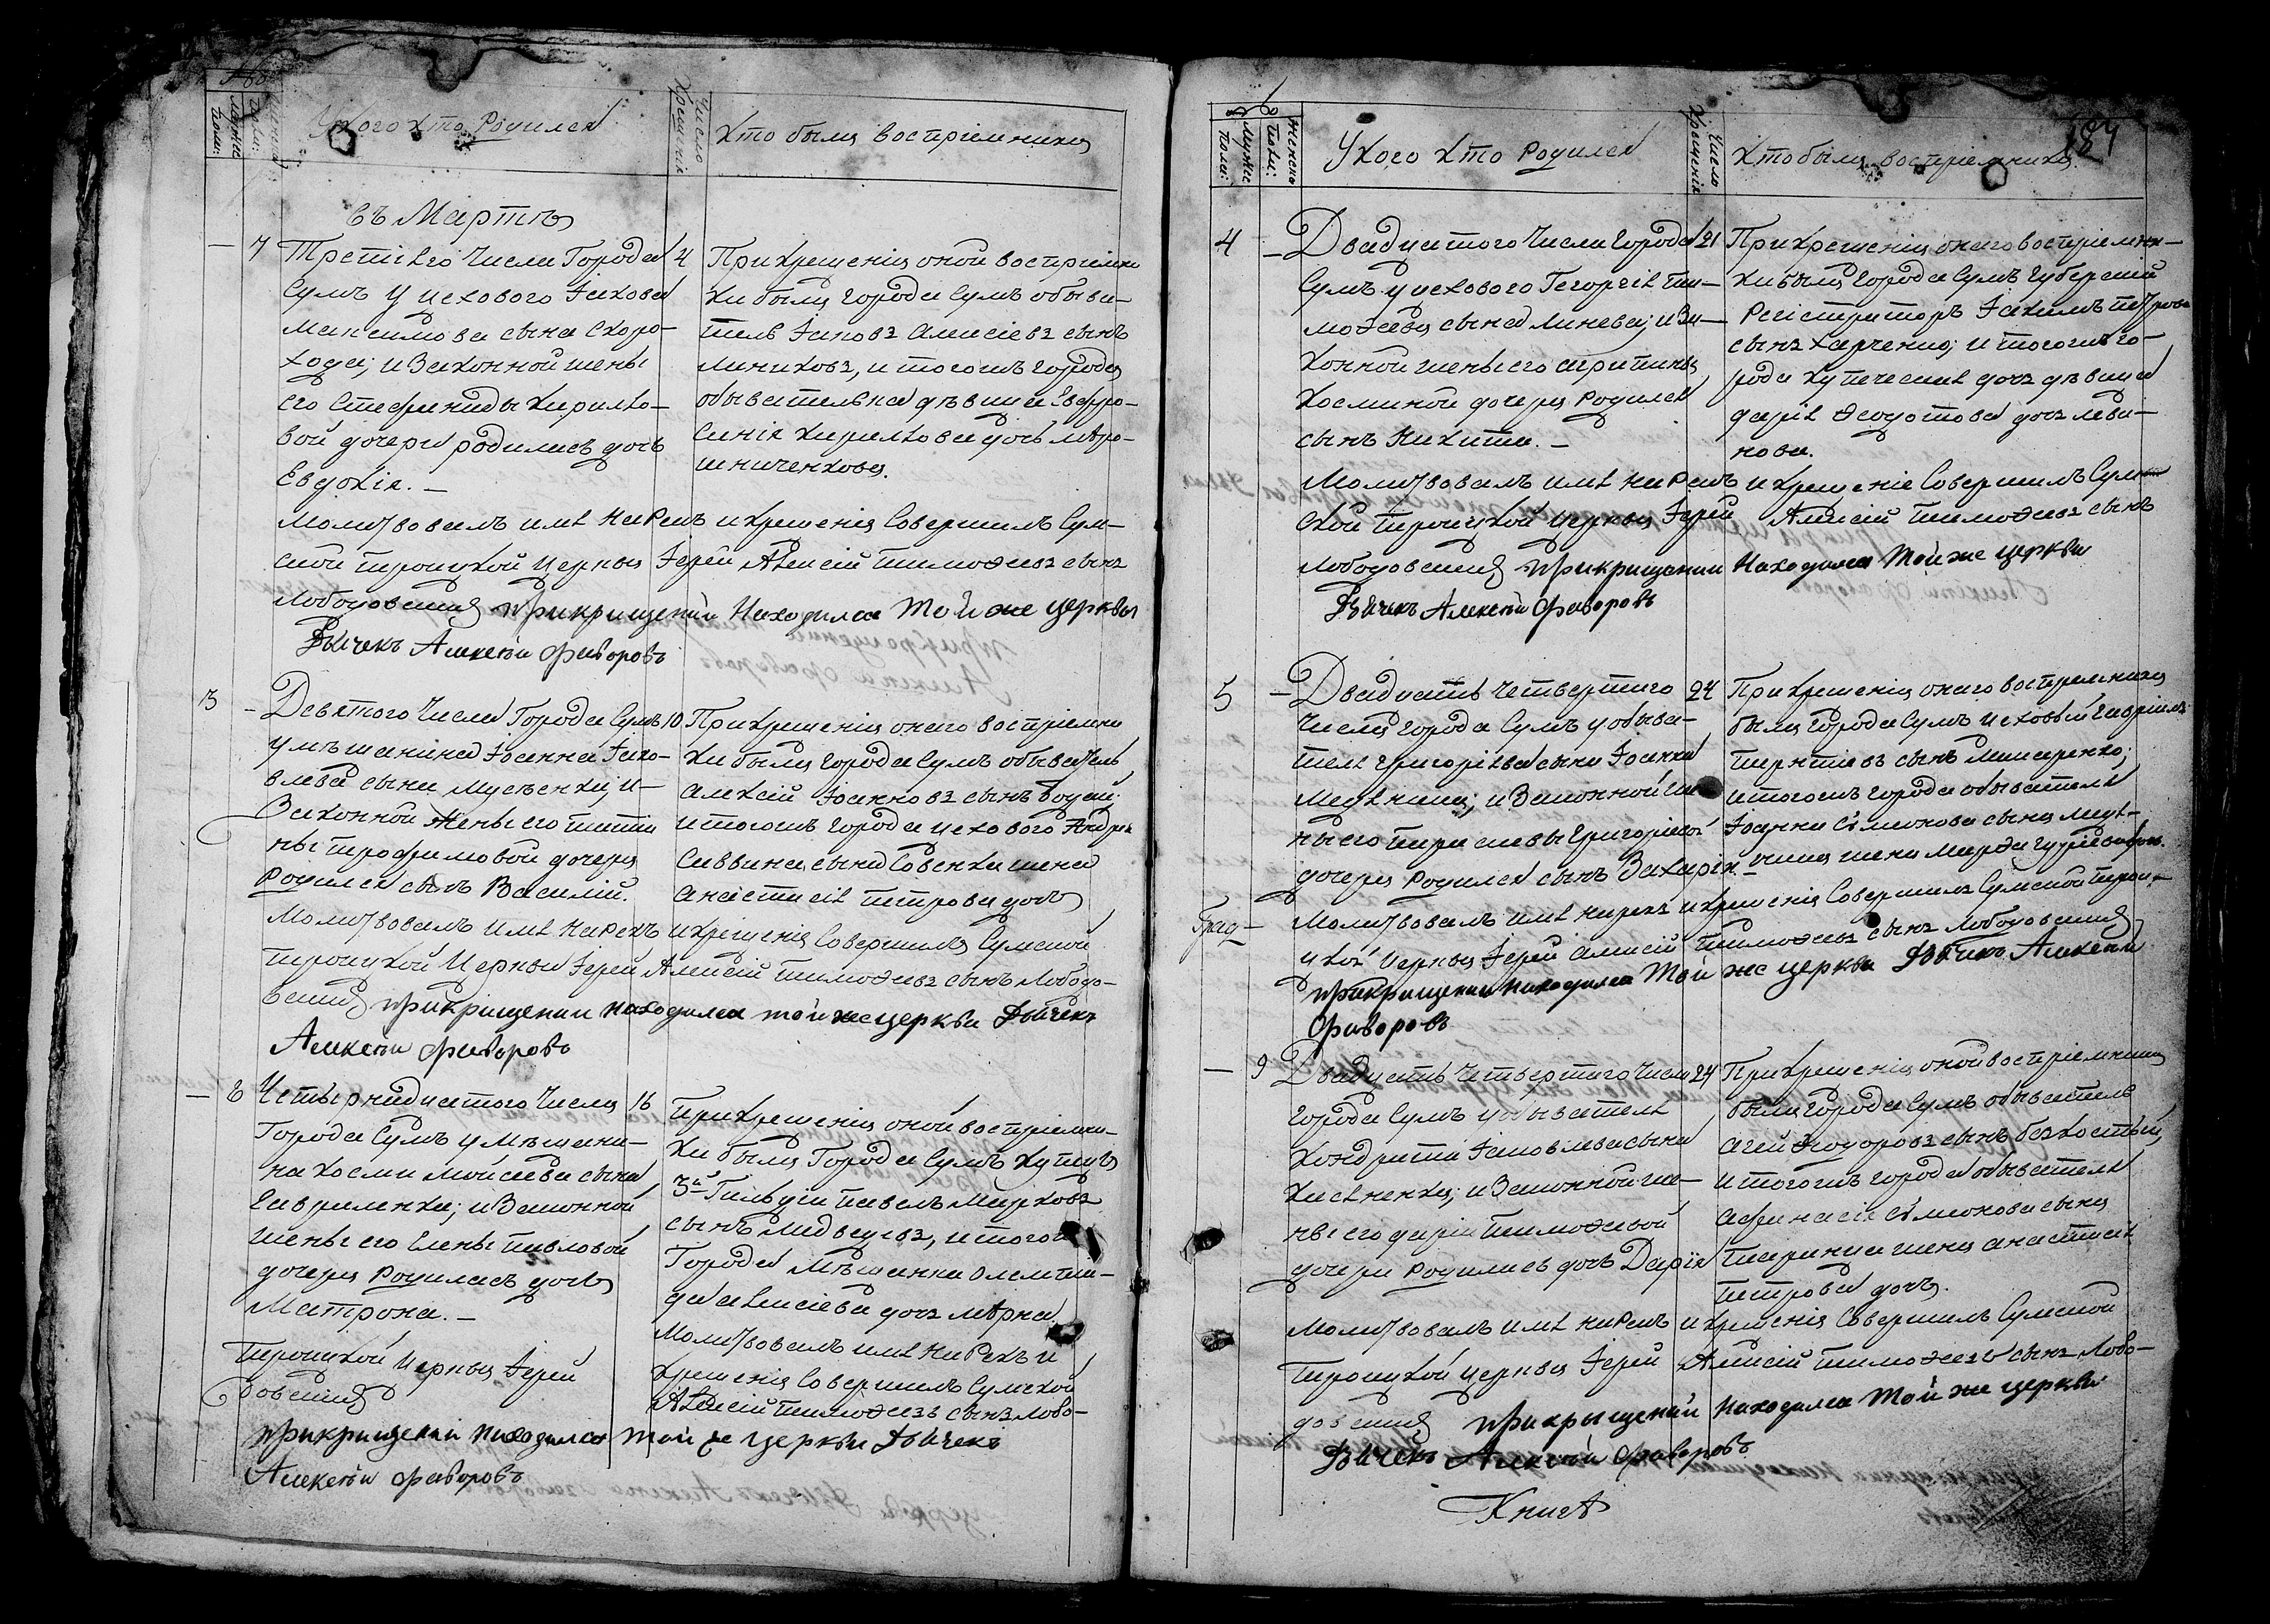 У кого кто родился
Число Крещенія
Кто были воспріемники
въ Мартѣ
— 7 Третіего Числа Города 4
Сумъ у цехового Іакова
Максимова сына Скоро-
хода; и Законной жены
его Стефаниды Кирило-
вой дочери родилась дочь
Евдокія. —
При крещеніи оной воспріемни
ки были города Сумъ обыва-
тель Іаковъ Алексіевъ сынъ
Линиковъ, и тогожъ города
обывателька дѣвица Евфро-
синія Кирилова дочь Мѣро-
шниченкова.
Молитвовалъ имя нарекъ и крещенія Совершилъ Сум-
ской троицкой церкви Іерей Алексій тимоѳеевъ сынъ
Лободовскій прикрищении Находилса той же церкви
Дьячекъ Алексѣй Фаворовъ
3 — Девятого Числа Города Сумъ 10
у мѣщанина Іоанна Іако-
влева сына Мусѣенка, и
Законной Жены его татіа
ны трофимовой дочери
родился сынъ Василій.
При крещеніи онаго воспріемни
ки были города Сумъ обыватель
Алексій Іоанновъ сынъ Боцай;
и тогожъ города цехового Андрея
Саввина сына Совенка жена
Анастасія петрова дочь
Молитвовалъ имя нарекъ и крещенія Совершилъ Сумской
троицкой Церкви Іерей Алексій тимоѳеевъ сынъ Лободо-
вскій прикрищении находилса той же церкви Дьячекъ
Алексѣй Фаворовъ
— 8 Четырнадцатого Числа 16
Города Сумъ у мѣщани-
на Косми Мойсіева сына
Гавриленка; и Законной
жены его Елены павловой
дочери родилась дочь
Матрона. —
При крещеніи оной воспріемни-
ки были Города Сумъ купецъ
3й Гильдіи павелъ Марковъ
сынъ Медведевъ, и тогожъ
Города Мѣщанка Олемпіи-
да Алексіева дочь
Молитвовалъ имя нарекъ и
крещенія Совершилъ Сумской
троицкой церкви Іерей
Алексій тимоѳеевъ сынъ Лобо-
довскій
прикрищении находилса той же церкви Дьячекъ
Алексѣй Фаворовъ
184
Женска полу:
Мужес полу:
У кого кто родился
Число Крещенія
Кто были воспріемники
4 — Двадцатого Числа Города 21
Сумъ у цехового Георгія ти-
моѳеева сына Линева; и За-
конной жены его Агрипины
Косминой дочери родился
сынъ Никита. —
При крещеніи онаго воспріемни-
ки были города Сумъ Губерскій
Регистраторъ Іакимъ петровъ
сынъ Харченко; и тогожъ го-
рода купеческая дочь дѣвица
дарія Ѳедотова дочь Леви-
нова.
Молитвовалъ имя нарекъ и крещеніе Совершилъ Сум-
ской троицкой церкви Іерей Алексій тимоѳеевъ сынъ
Лободовскій прикрищении Находилса той же церкви
Дьячекъ Алексѣй Фаворовъ
5 — Двадцать четвертаго 24
Числа города Сумъ у обыва-
теля Григоріева сына Іоанна
и Законной же-
ны его параскевы Григоріевой
дочери родился сынъ Захарія. —
При крещеніи онаго воспріемники
были города Сумъ цеховый Гавріилъ
сынъ Макаренко;
и тогожъ города обывателя
Іоанна Сімеонова сына
жена Марѳа Гуріева дочь.
Молитвовалъ имя нарекъ и крещенія Совершилъ Сумской трои-
цкой церкви Іерей Алексій тимоѳеевъ сынъ Лободовскій
прикрищении находилса той же церкви Дьячекъ Алексѣй
Фаворовъ
— 9 Двадцать четвертаго Числа 24
города Сумъ у обывателя
Кондратія Іаковлева сына
и Законной же-
ны его даріи тимоѳеевой
дочери родилась дочь Дарія
При крещеніи оной воспріемники
были города Сумъ обыватель
Агей Ѳеодоровъ сынъ безкостый,
и тогожъ города обывателя
Афанасія Сімеонова сына
жена Анастасія
петрова дочь.
Молитвовалъ имя нарекъ и крещенія Совершилъ Сумской
троицкой церкви Іерей Алексій тимоѳеевъ сынъ Лобо-
довскій прикрыщении Находилса той же церкви
Дьячекъ Алексѣй Фаворовъ
Книга